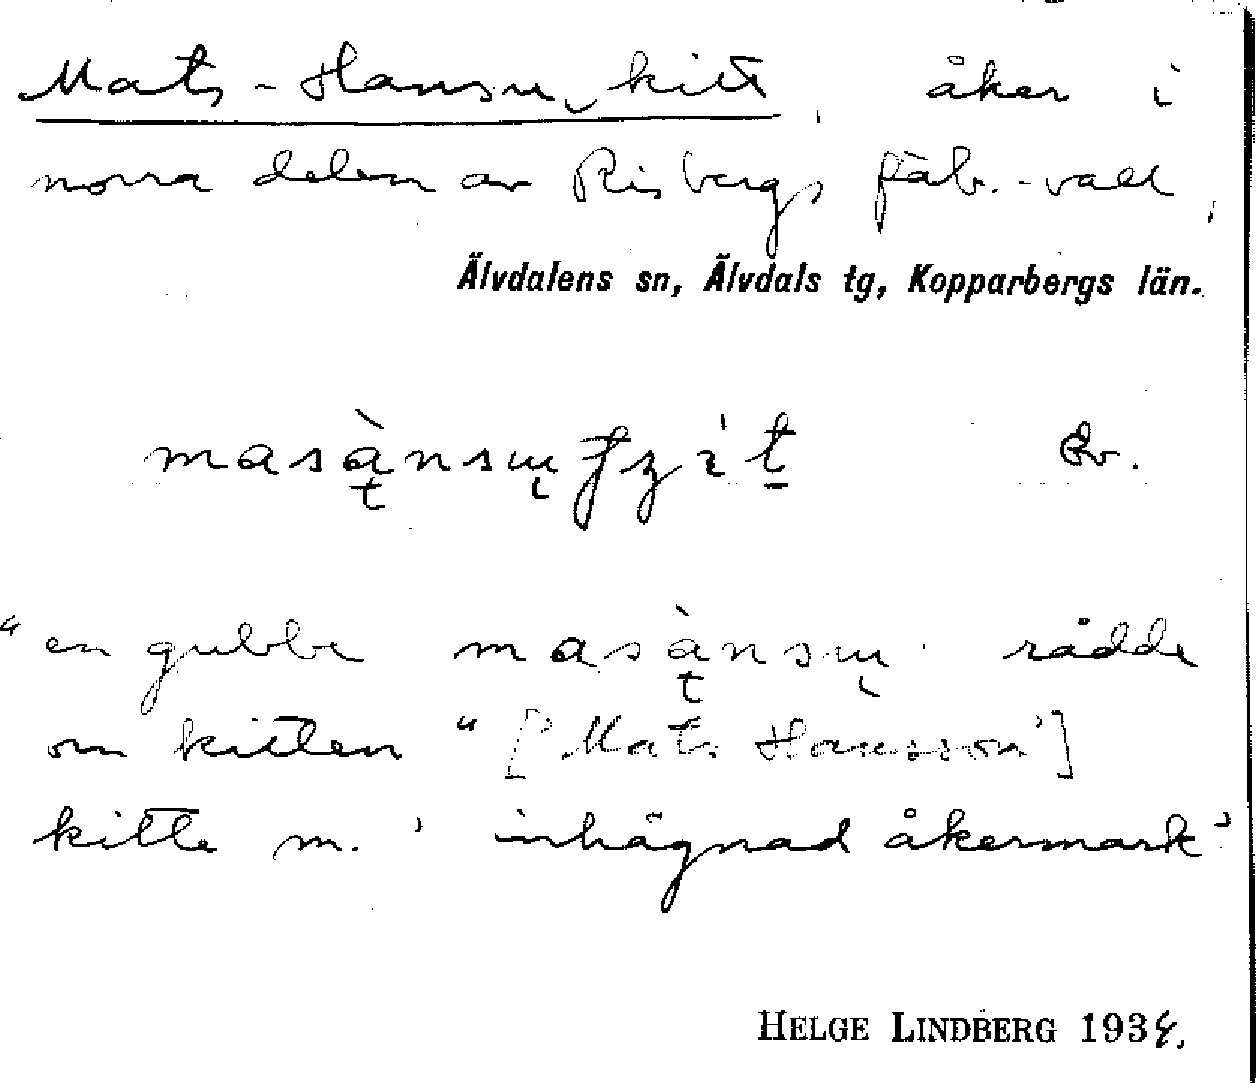 Mats-Hansu, kitt, åker i
norra delen av Risbergs fäb.-vall,
Älvdalens sn, Älvdals tg, Kopparbergs län.
"en gubbe rådde
om kitten" ['Mats Hansson']
kitte m. 'inhägnad åkermark'
HELGE LINDBERG 1934.